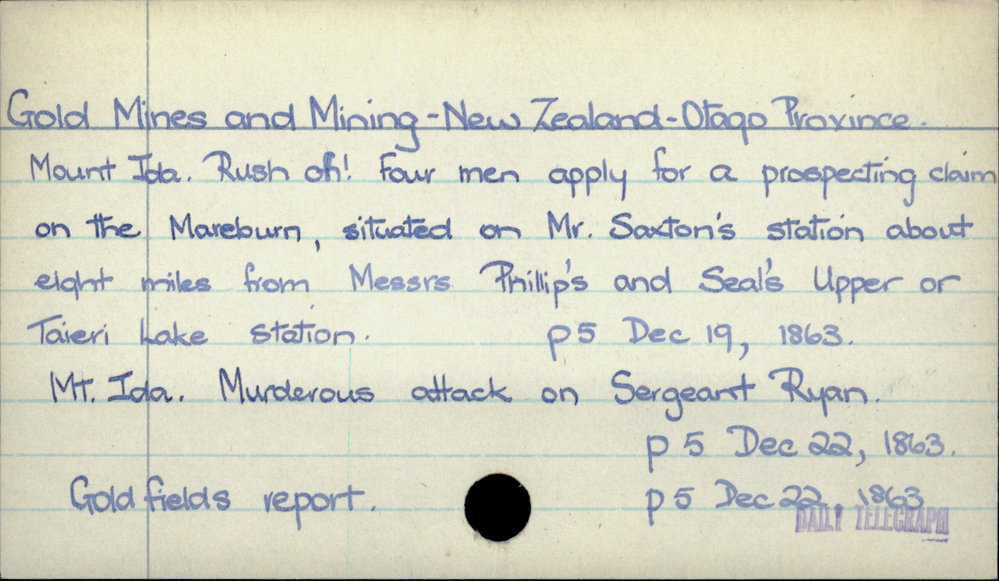 Gold Mines and Mining - New Zealand - Otago Province.
Mount Ida. Rush oh! Four men apply for a prospecting claim
on the Mareburn, situated on Mr. Saxton's station about
eight miles from Messrs Phillip's and Seal's Upper or
Taieri Lake station. p5 Dec 19, 1863.
Mt. Ida. Murderous attack on Sergeant Ryan.
p 5 Dec 22, 1863.
Gold fields report. p 5 Dec 22, 1863
DAILY TELEGRAPH